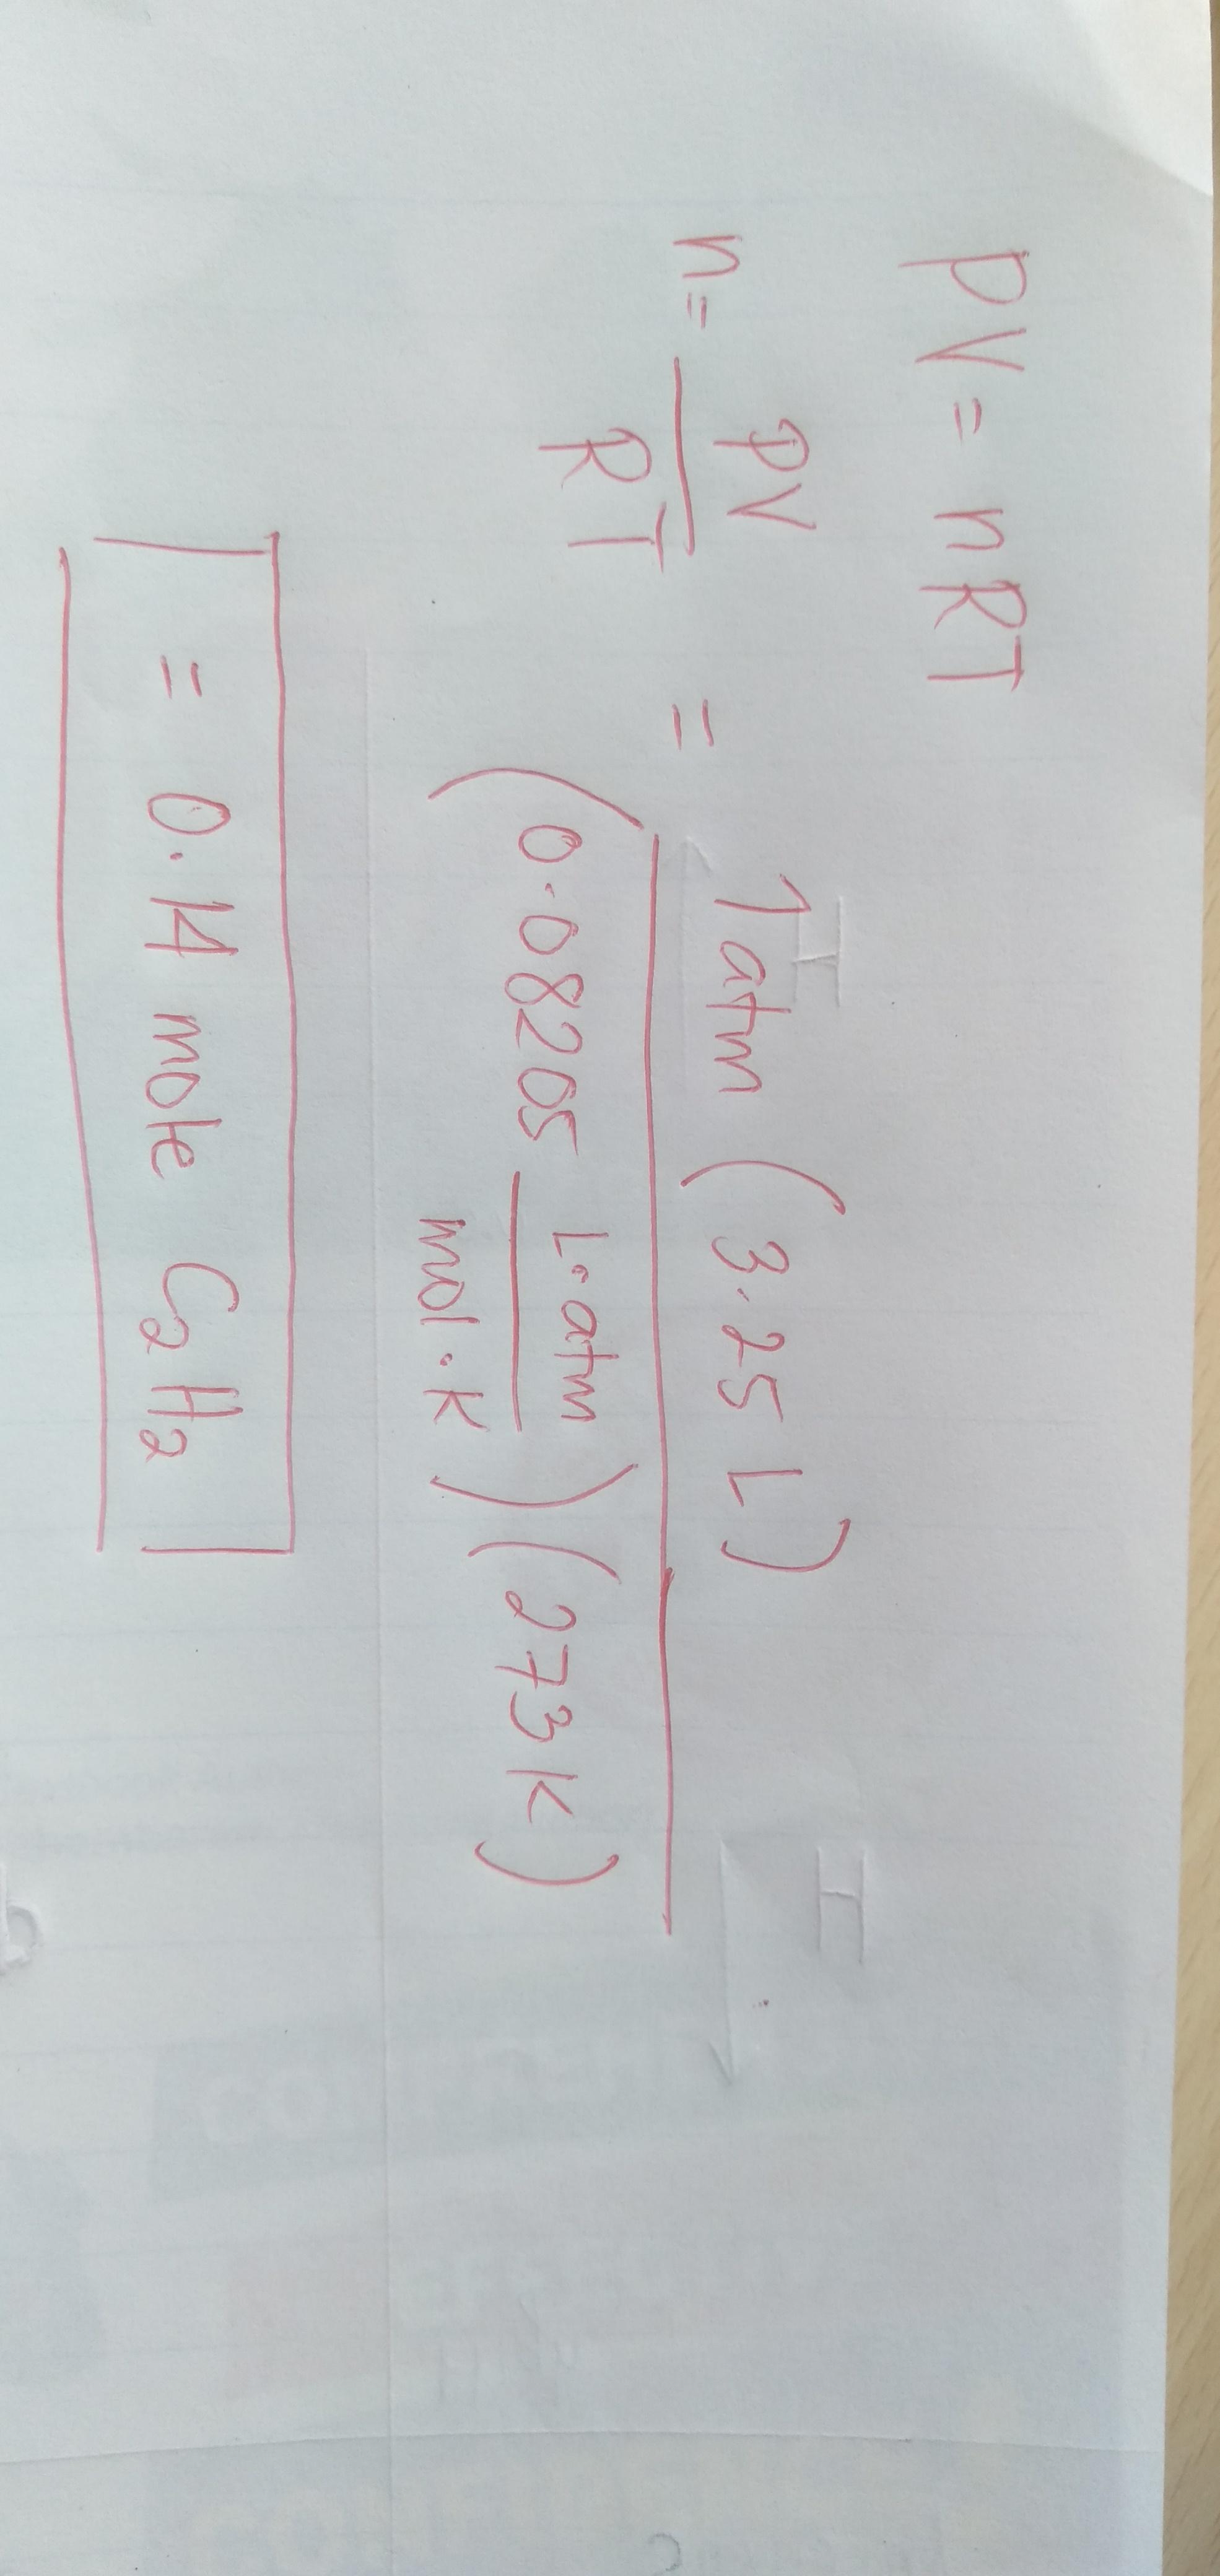 PV = nRT
n = PV/RT = 1atm (3.25 L) / (0.08205 L·atm/mol·K)(273K)
= 0.14 mole C₂H₂